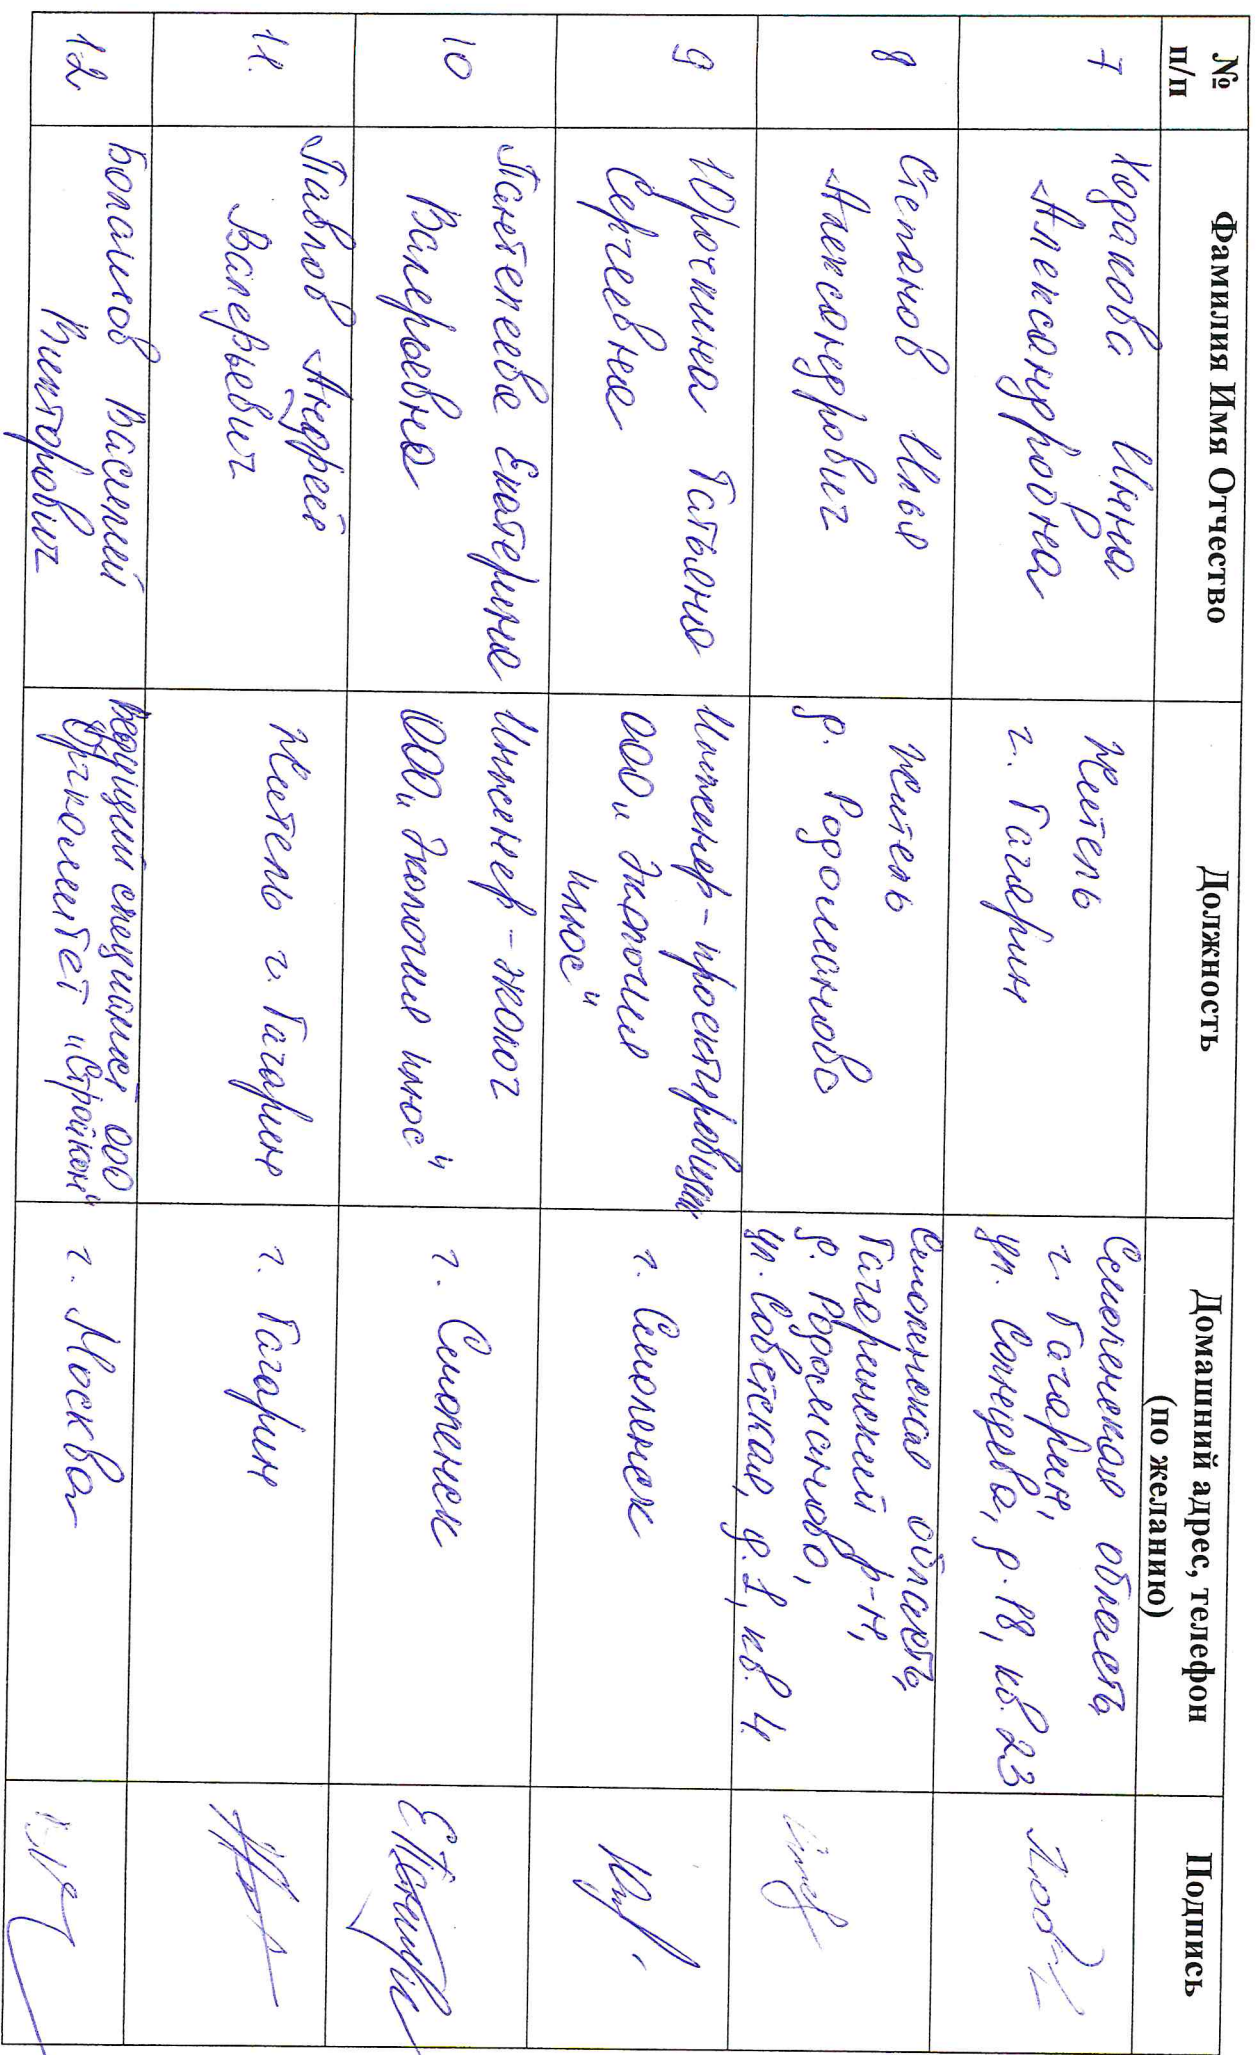 № п/п
Фамилия Имя Отчество
Должность
Домашний адрес, телефон
(по желанию)
Подпись
7
Ходакова Инна
Александровна
Житель
г. Гагарин
Смоленская область,
г. Гагарин,
ул. Солнцева, д. 18, кв. 23
8
Степанов Илья
Александрович
Житель
д. Родоманово
Смоленская область,
Гагаринский р-н,
д. Родоманово,
ул. Советская, д. 1, кв. 4
9
Татьяна
Сергеевна
Инженер-проектировщик
ООО „Экология
плюс"
г. Смоленск
10
Пантелеева Екатерина
Валерьевна
Инженер-эколог
ООО „Экология плюс"
г. Смоленск
11.
Павлов Андрей
Валерьевич
Житель г. Гагарин
г. Гагарин
12
Василий
Викторович
Ведущий специалист ООО
„Стройкон"
г. Москва